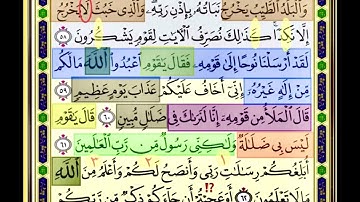 وَٱلْبَلَدُ ٱلطَّيِّبُ يَخْرُجُ نَبَاتُهُۥ بِإِذْنِ رَبِّهِۦ وَٱلَّذِى خَبُثَ لَا يَخْرُجُ
إِلَّا نَكِدًا كَذَٰلِكَ نُصَرِّفُ ٱلْـَٔايَـٰتِ لِقَوْمٍ يَشْكُرُونَ ٥٨
لَقَدْ أَرْسَلْنَا نُوحًا إِلَىٰ قَوْمِهِۦ فَقَالَ يَـٰقَوْمِ ٱعْبُدُوا۟ ٱللَّهَ مَا لَكُم
مِّنْ إِلَـٰهٍ غَيْرُهُۥٓ إِنِّىٓ أَخَافُ عَلَيْكُمْ عَذَابَ يَوْمٍ عَظِيمٍ ٥٩
قَالَ ٱلْمَلَأُ مِن قَوْمِهِۦٓ إِنَّا لَنَرَىٰكَ فِى ضَلَـٰلٍ مُّبِينٍ ٦٠ قَالَ يَـٰقَوْمِ
لَيْسَ بِى ضَلَـٰلَةٌ وَلَـٰكِنِّى رَسُولٌ مِّن رَّبِّ ٱلْعَـٰلَمِينَ ٦١
أُبَلِّغُكُمْ رِسَـٰلَـٰتِ رَبِّى وَأَنصَحُ لَكُمْ وَأَعْلَمُ مِنَ ٱللَّهِ
مَا لَا تَعْلَمُونَ ٦٢ أَوَعَجِبْتُمْ أَن جَآءَكُمْ ذِكْرٌ مِّن رَّبِّكُمْ